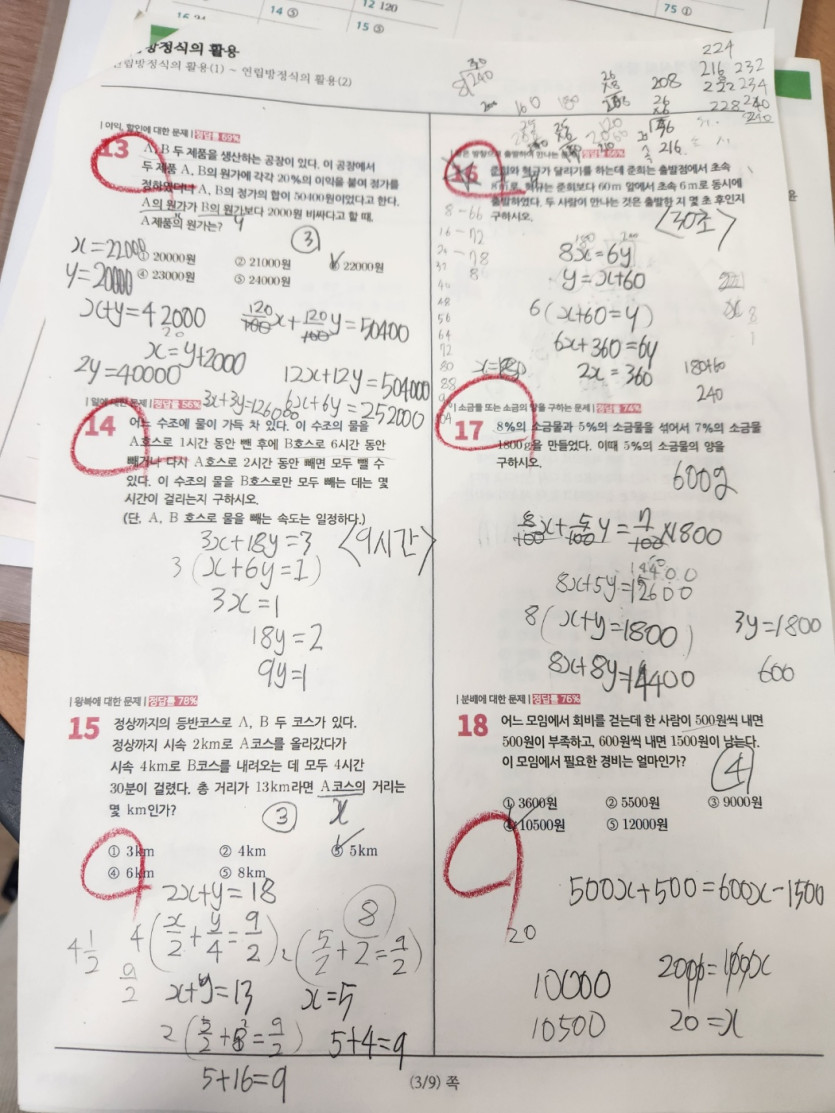 14 ⑤
12 120
15 ③
75 ①
방정식의 활용
연립방정식의 활용(1) ~ 연립방정식의 활용(2)
224
216 232
222 234
228 240
240
208
216
| 이익, 할인에 대한 문제 | 정답률 69%
13 A, B 두 제품을 생산하는 공장이 있다. 이 공장에서
두 제품 A, B의 원가에 각각 20%의 이익을 붙여 정가를
정하였더니 A, B의 정가의 합이 50400원이었다고 한다.
A의 원가가 B의 원가보다 2000원 비싸다고 할 때,
A 제품의 원가는?
y
③
① 20000원 ② 21000원 ③ 22000원
④ 23000원 ⑤ 24000원
x=22000
y=20000
x+y=42000
120/100x+120/100y=50400
x=y+2000
2y=40000
12x+12y=504000
3x+3y=126000
6x+6y=252000
| 일에 대한 문제 | 정답률 56%
14 어느 수조에 물이 가득 차 있다. 이 수조의 물을
A호스로 1시간 동안 뺀 후에 B호스로 6시간 동안
빼거나 다시 A호스로 2시간 동안 빼면 모두 뺄 수
있다. 이 수조의 물을 B호스로만 모두 빼는 데는 몇
시간이 걸리는지 구하시오.
(단, A, B 호스로 물을 빼는 속도는 일정하다.)
3x+18y=3
<9시간>
3(x+6y=1)
3x=1
18y=2
9y=1
| 왕복에 대한 문제 | 정답률 78%
15 정상까지의 등반코스로 A, B 두 코스가 있다.
정상까지 시속 2km로 A코스를 올라갔다가
시속 4km로 B코스를 내려오는 데 모두 4시간
30분이 걸렸다. 총 거리가 13km라면 A코스의 거리는
몇 km인가?
③
x
① 3km ② 4km ③ 5km
④ 6km ⑤ 8km
2x+y=18
8
4 1/2
4(x/2+y/4=9/2)
2(5/2+2=9/2)
9/2
x+y=13
x=5
5+4=9
5+16=9
16 준희와 혁규가 달리기를 하는데 준희는 출발점에서 초속
출발하였다. 두 사람이 만나는 것은 출발한 지 몇 초 후인지
구하시오.
<30초>
8-66
16-72
24-78
48
56
64
72
80
8x=6y
y=x+60
6(x+60=y)
6x+360=6y
x=180
2x=360
180+60
240
| 소금물 또는 소금의 양을 구하는 문제 | 정답률 74%
17 8%의 소금물과 5%의 소금물을 섞어서 7%의 소금물
1800g을 만들었다. 이때 5%의 소금물의 양을
구하시오.
600g
8/100x+5/100y=7/100×1800
14400
8x+5y=12600
8(x+y=1800)
3y=1800
8x+8y=14400
600
| 분배에 대한 문제 | 정답률 76%
18 어느 모임에서 회비를 걷는데 한 사람이 500원씩 내면
500원이 부족하고, 600원씩 내면 1500원이 남는다.
이 모임에서 필요한 경비는 얼마인가?
④
① 3600원 ② 5500원 ③ 9000원
④ 10500원 ⑤ 12000원
500x+500=600x-1500
20
10000
2000=100x
10500
20=x
(3/9) 쪽